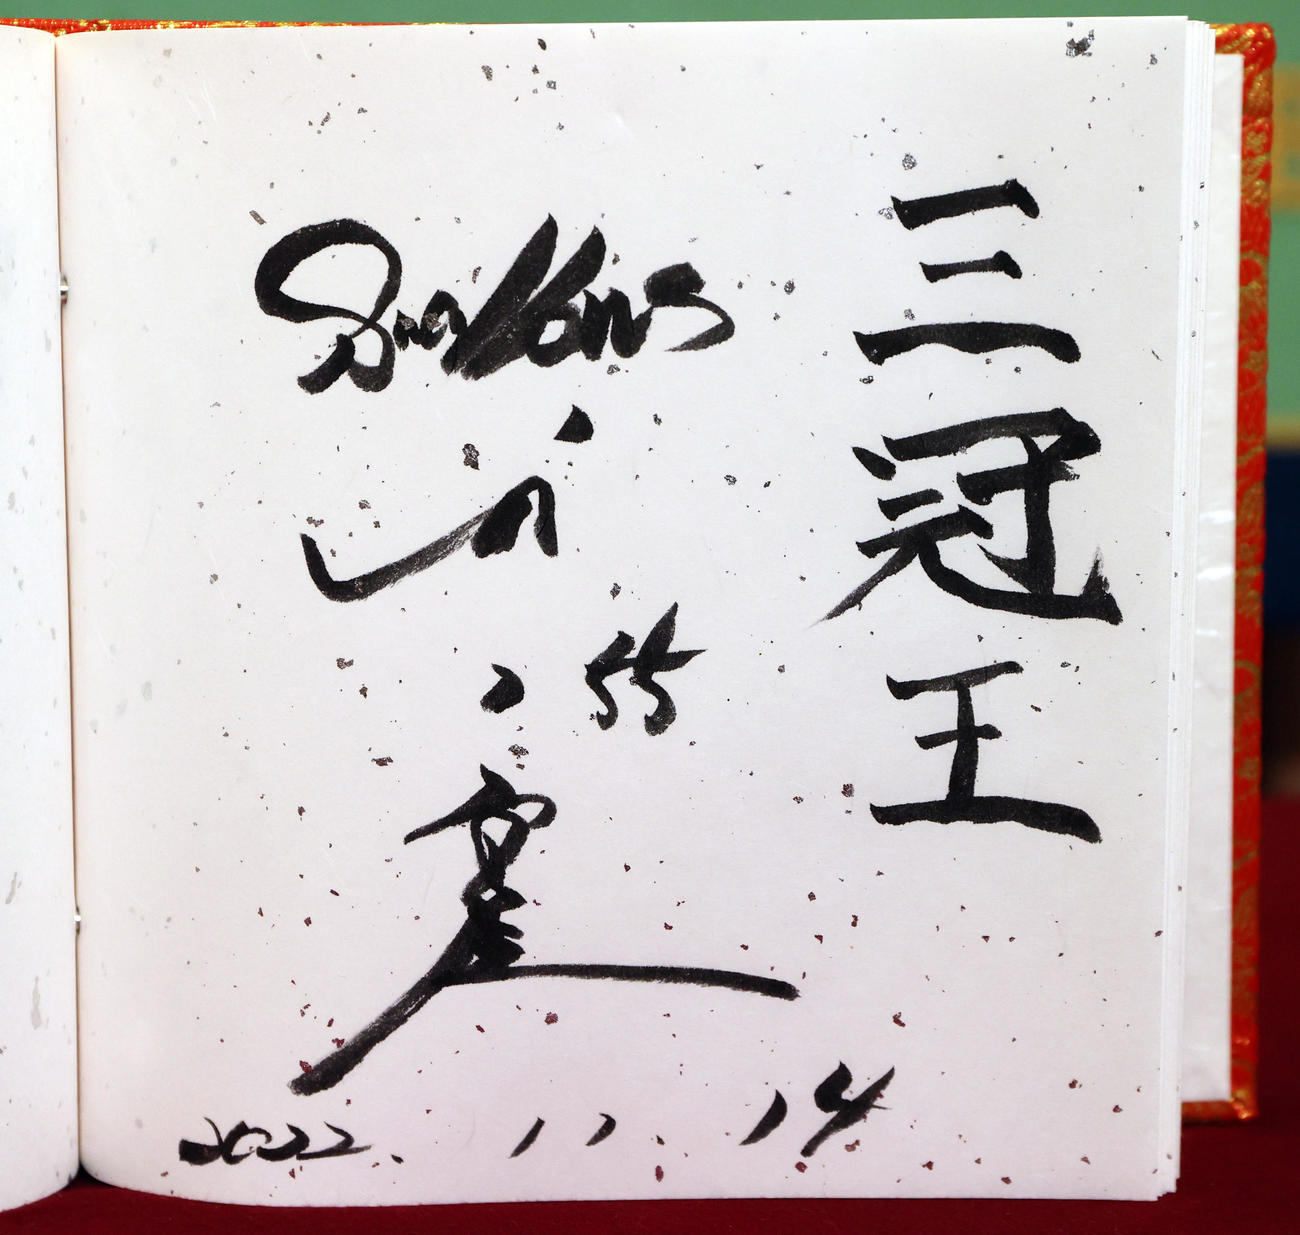 三冠王
Swallows
55
2022. 11. 14